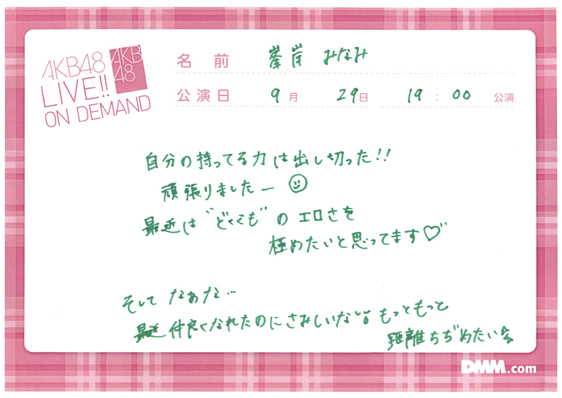 AKB48
LIVE!!
ON DEMAND
AKB
48
名前 峯岸 みなみ
公演日 9月 29日 19:00 公演
自分の持ってる力は出し切った!!
頑張りましたー
最近は"どくとも"のエロさを
極めたいと思ってます♡
そして なぁな…
最近仲良くなれたのにさみしいなぁ。もっともっと
距離ちぢめたい
DMM.com